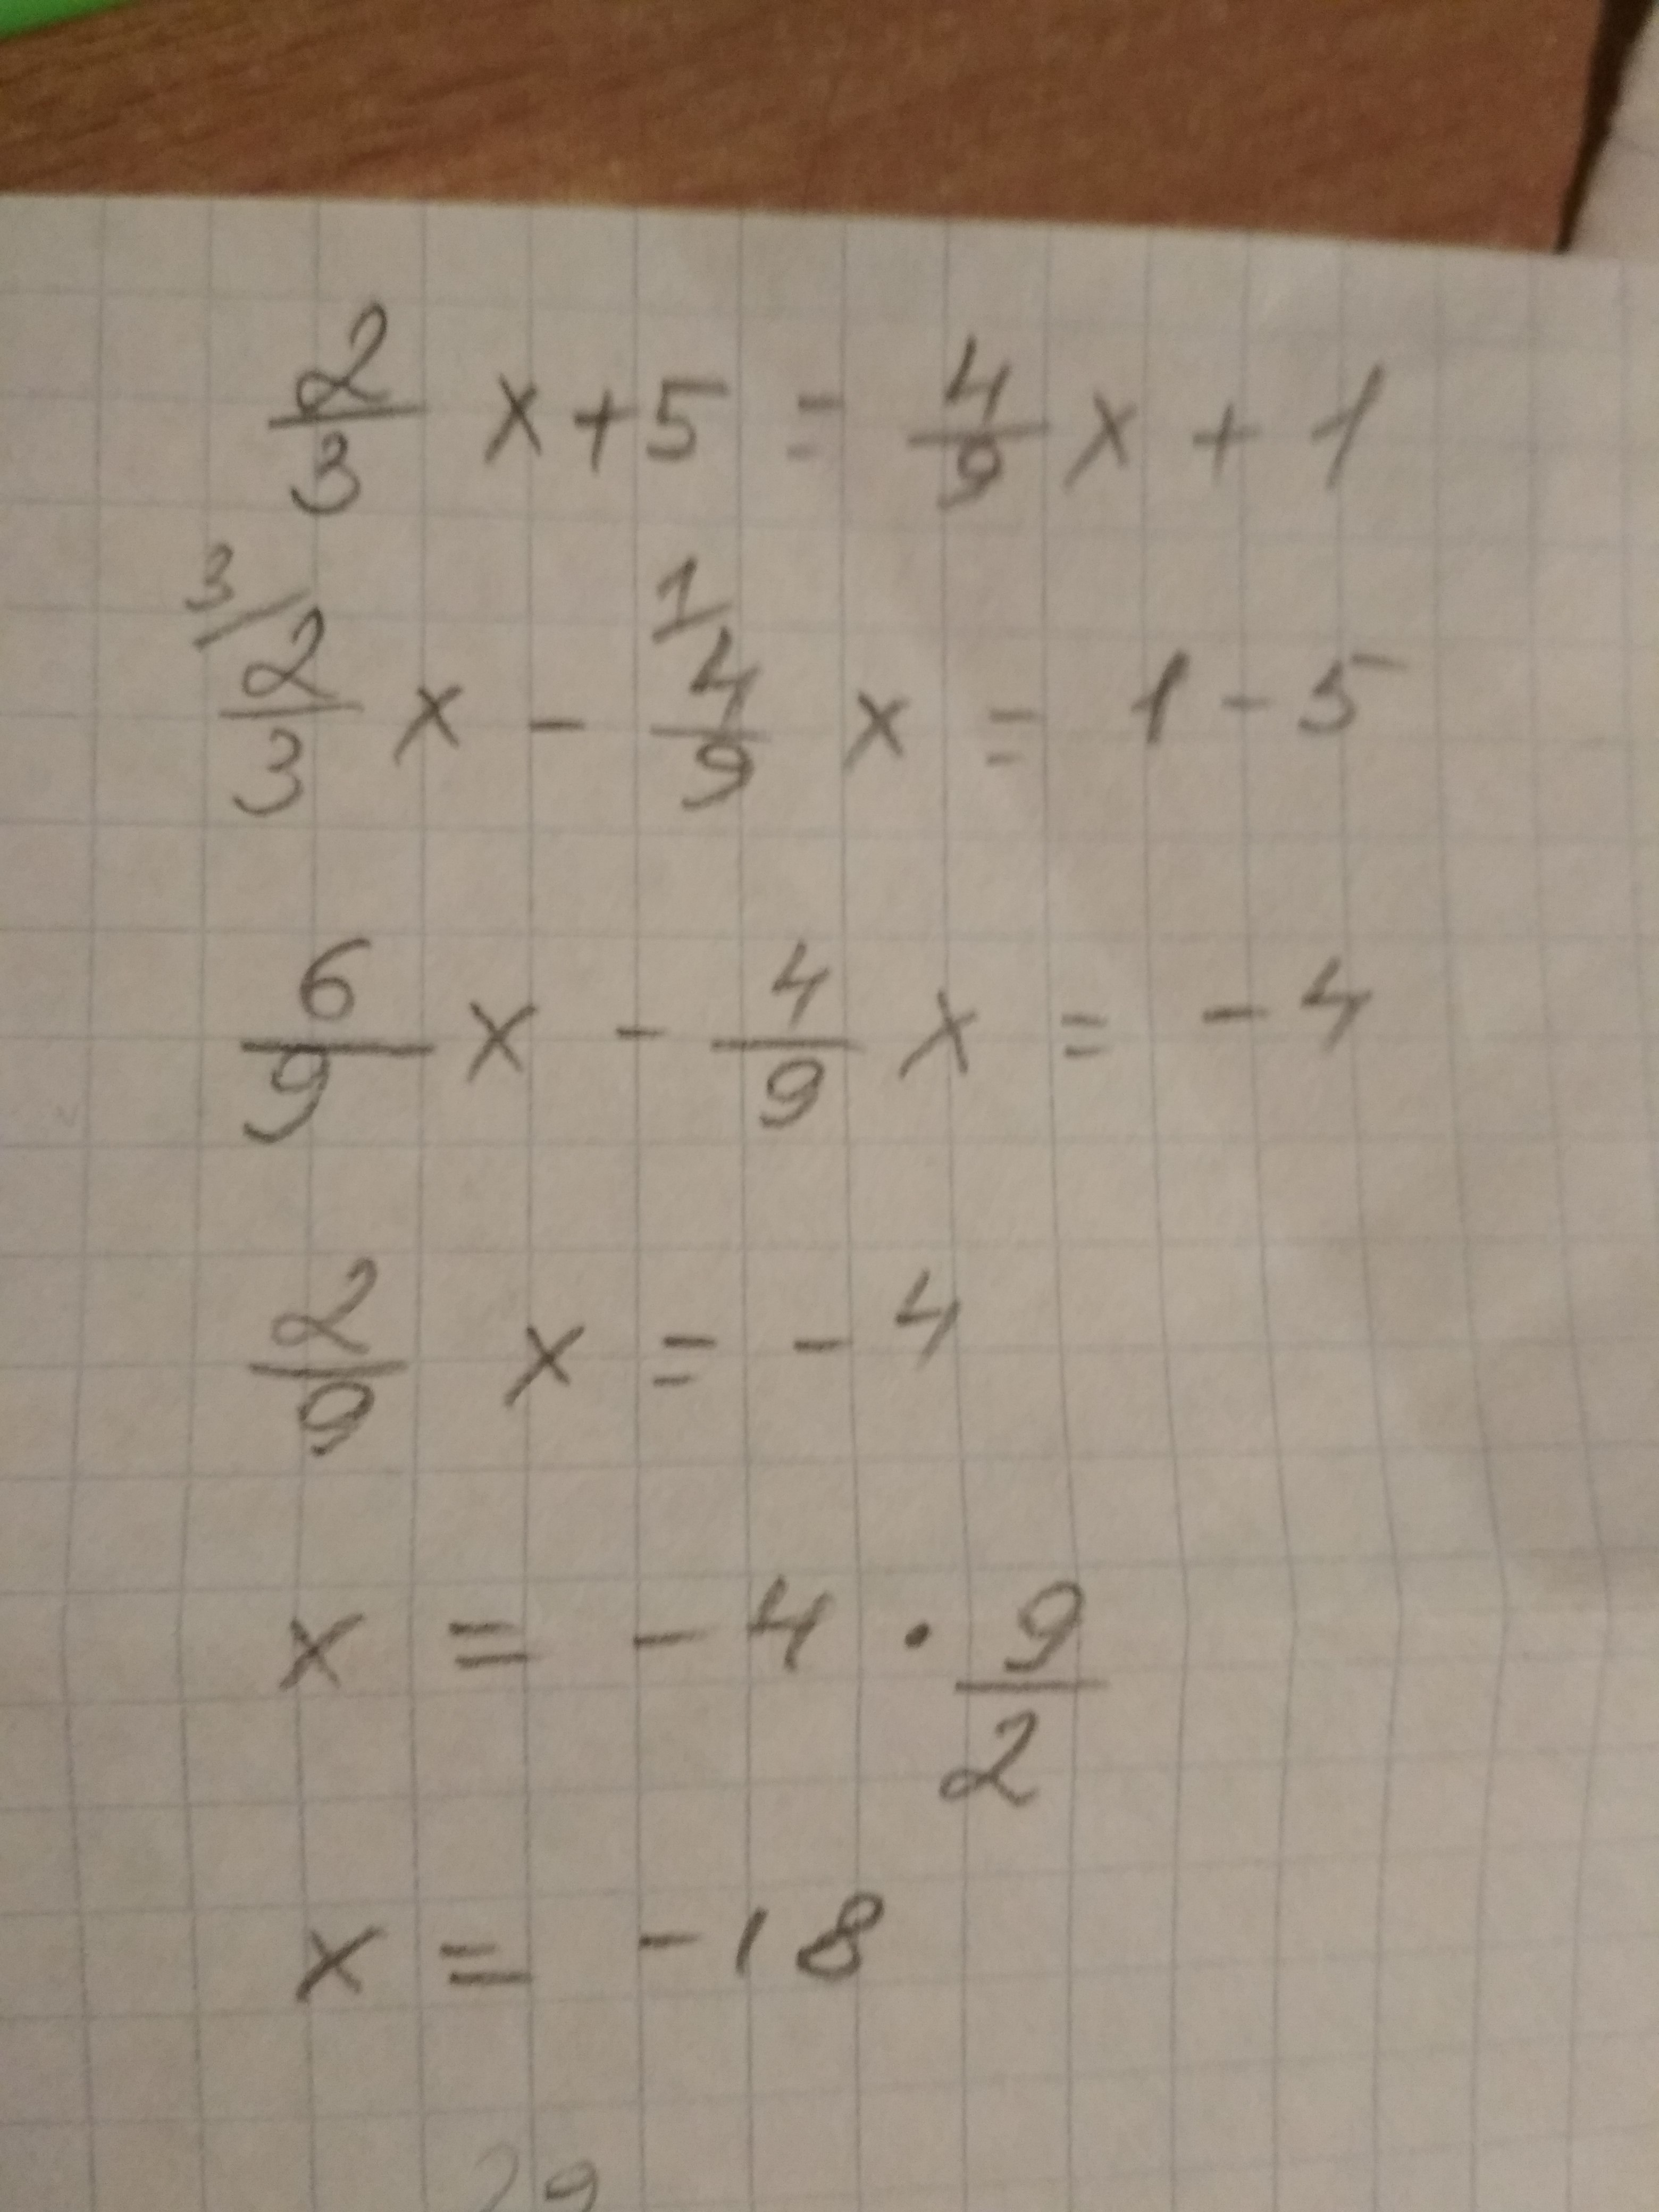 2/3 x + 5 = 4/9 x + 1
3/ 2/3 x - 1/ 4/9 x = 1 - 5
6/9 x - 4/9 x = - 4
2/9 x = - 4
x = - 4 · 9/2
x = - 18